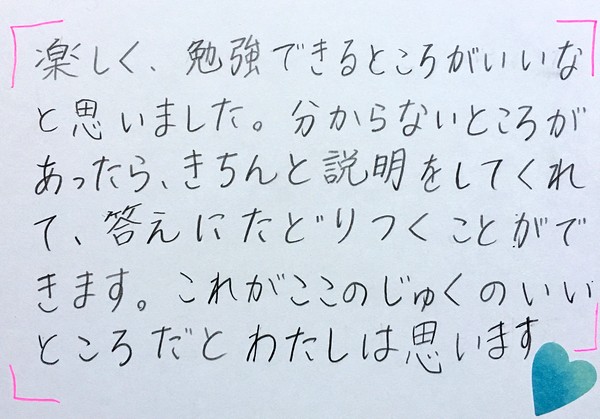 楽しく、勉強できるところがいいな
と思いました。分からないところが
あったら、きちんと説明をしてくれ
て、答えにたどりつくことがで
きます。これがここのじゅくのいい
ところだとわたしは思います